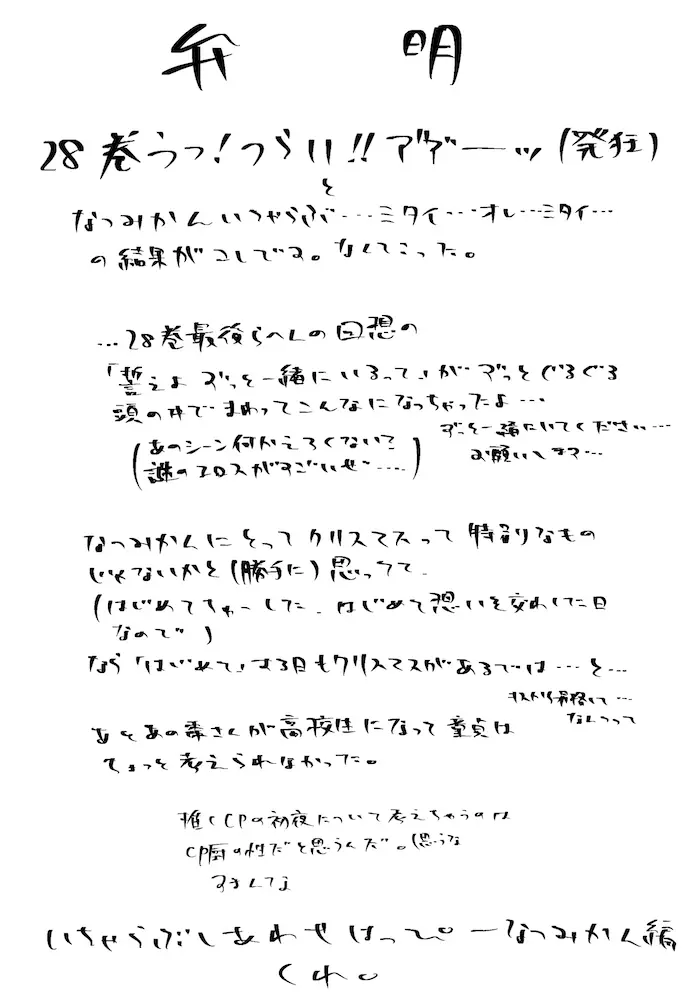 弁明
28巻うっ!つらい!!アヾアヾーッ(発狂)
と
なつみかんいちゃらぶ…ミタイ…オレ…ミタイ…
の結果がコレです。なんてこった。
…28巻最後らへんの回想の
「誓えよ ずっと一緒にいるって」がずっとぐるぐる
頭の中でまわってこんなになっちゃったよ…
ずっと一緒にいてください…
お願いします…
(あのシーン何かえろくない?
謎のエロスがすごいぜ…)
なつみかんにとってクリスマスって特別なもの
じゃないかと(勝手に)思ってて、
(はじめてちゅーした、はじめて想いを交わした日
なので)
なら「はじめて」する日もクリスマスがあるでは…と…
昇格して…
なんつって
あとあの棗さんが高校生になって童貞は
ちょっと考えられなかった。
推しCPの初夜について考えちゃうのは
CP厨の性だと思うんだ。(思うな
すみません
いちゃらぶしあわせはっぴーなつみかん編
くれ。